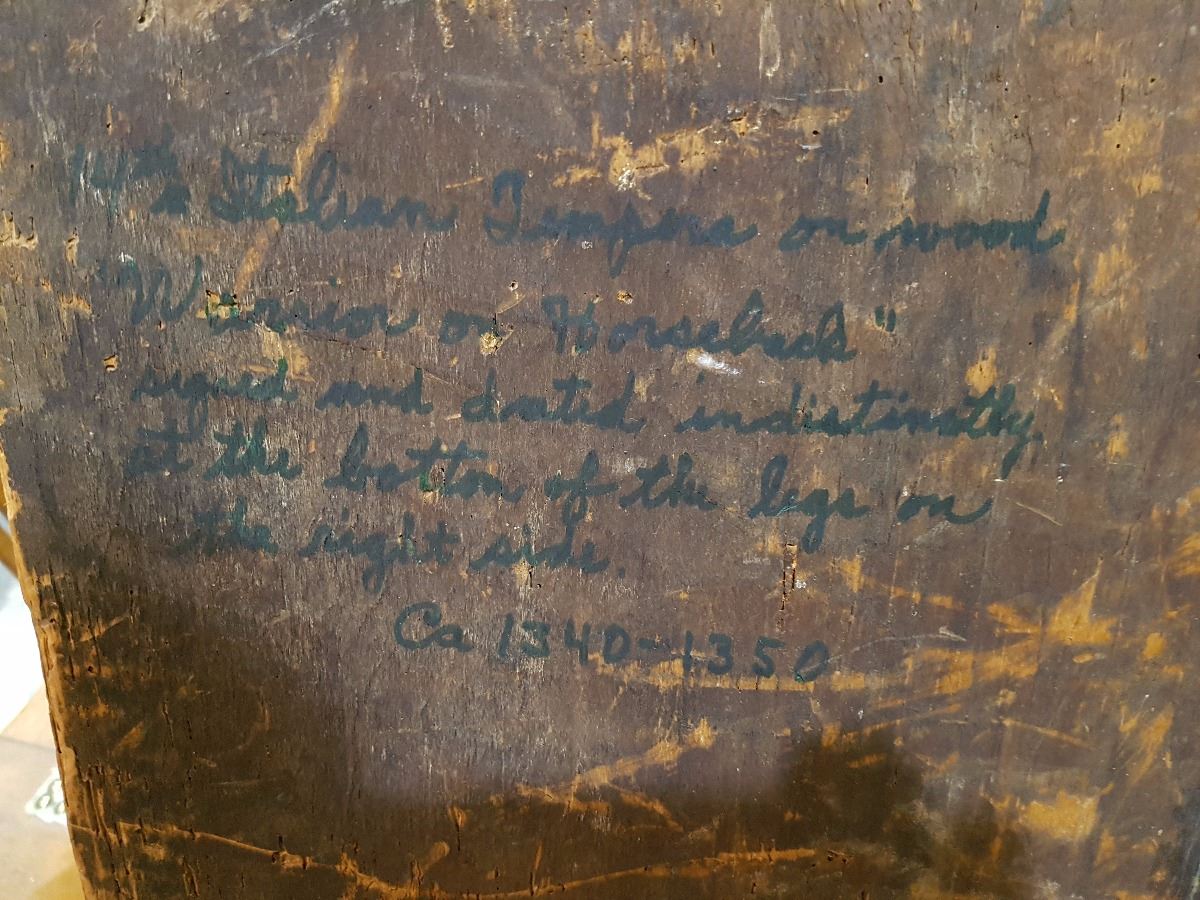 14th Italian Tempera on wood
"Warrior on Horseback"
signed and dated indistinctly,
at the bottom of the legs on
the right side.
Ca 1340-1350